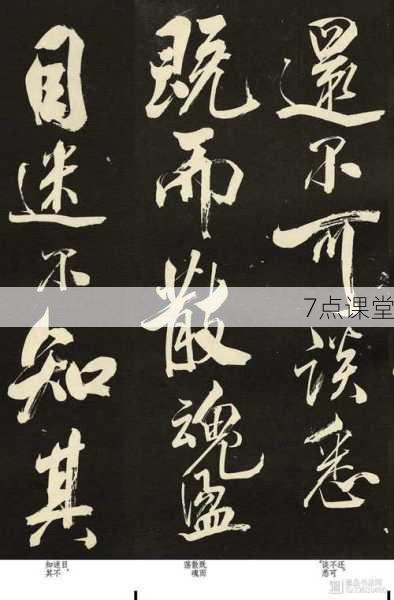 還不可談悉
既而散魂盪
目迷不知其
7点课堂
还，不可谈悉
既而散魂荡
目，迷不知其